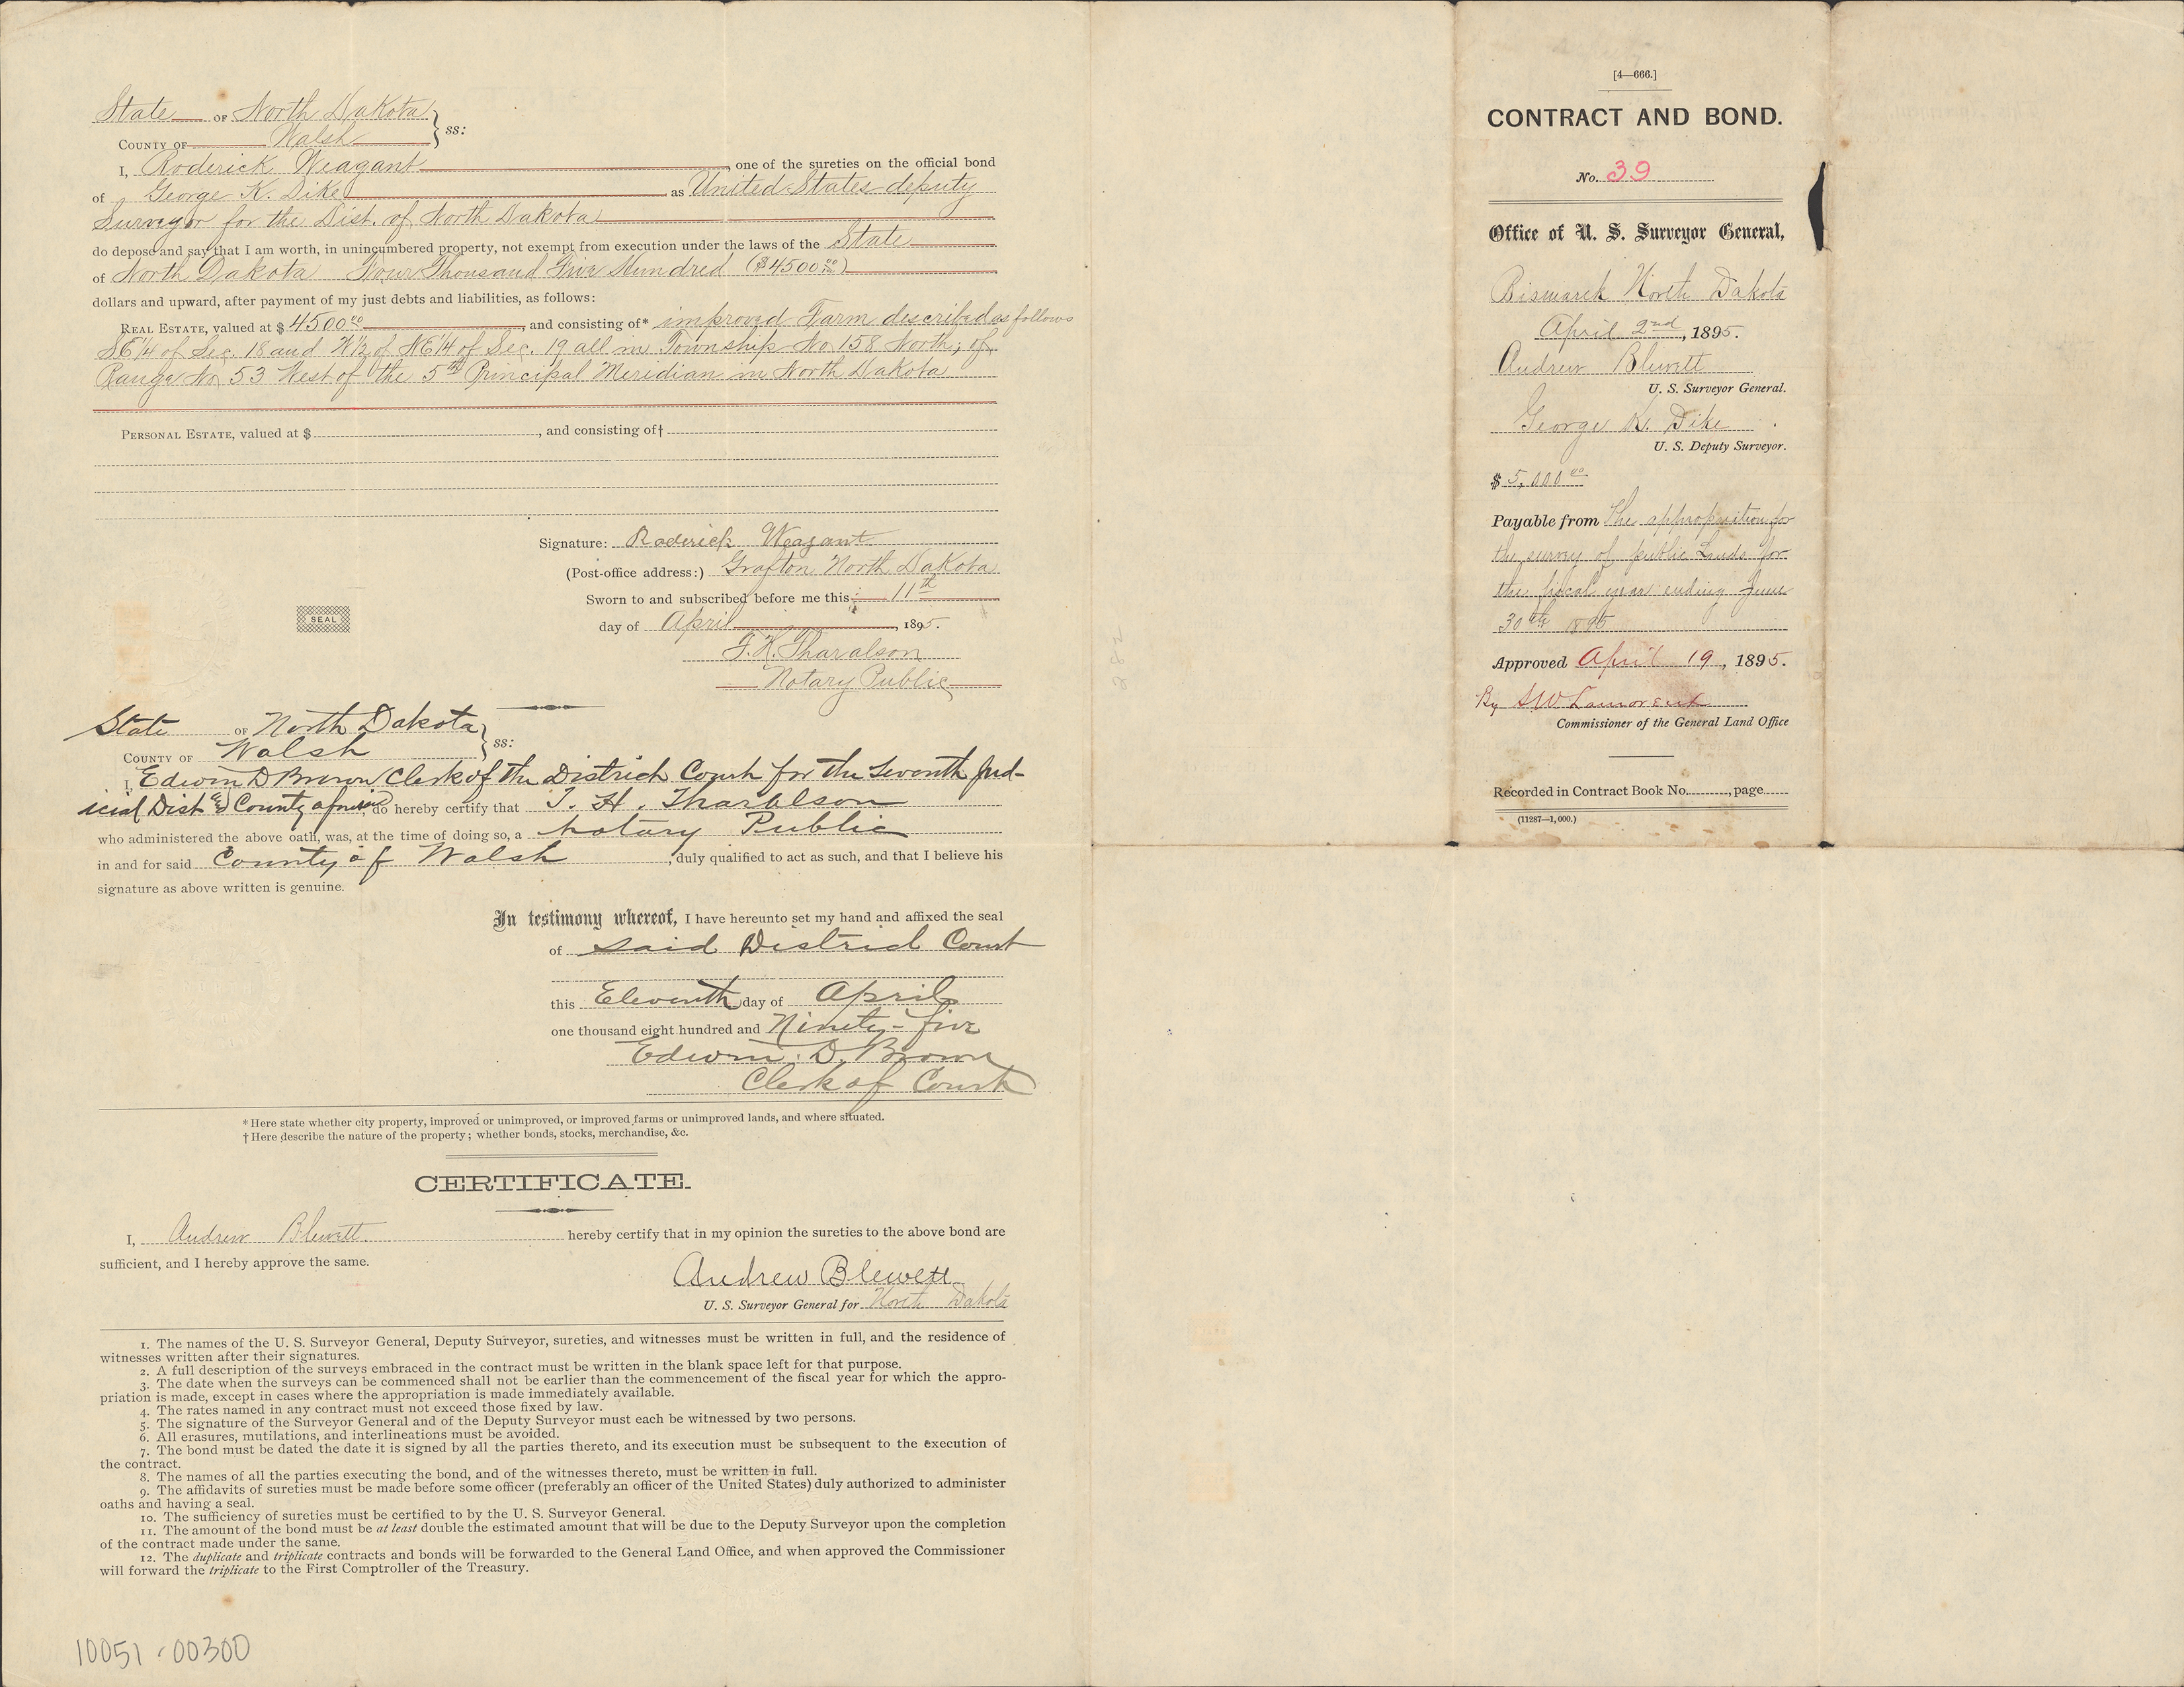 State of North Dakota } ss:
County of Walsh
I, Roderick Weagant, one of the sureties on the official bond
of George K. Dike as United States deputy
Surveyor for the Dist. of North Dakota
do depose and say that I am worth, in unincumbered property, not exempt from execution under the laws of the State
of North Dakota Four Thousand Five Hundred ($4500.00)
dollars and upward, after payment of my just debts and liabilities, as follows:
Real Estate, valued at $ 4500.00, and consisting of* improved Farm described as follows
SE 1/4 of Sec. 18 and W 1/2 of NE 1/4 of Sec. 19 all in Township No 158 North, of
Range No 53 West of the 5th Principal Meridian in North Dakota
Personal Estate, valued at $, and consisting of†
Signature: Roderick Weagant
(Post-office address:) Grafton North Dakota
Sworn to and subscribed before me this 11th
SEAL
day of April, 1895.
T. H. Tharalson
Notary Public
State of North Dakota } ss:
County of Walsh
I, Edwin D Brown Clerk of the District Court for the Seventh Jud-
icial Dist & County aforesaid, do hereby certify that T. H. Tharalson
who administered the above oath, was, at the time of doing so, a Notary Public
in and for said County of Walsh, duly qualified to act as such, and that I believe his
signature as above written is genuine.
In testimony whereof, I have hereunto set my hand and affixed the seal
of said District Court
this Eleventh day of April
one thousand eight hundred and Ninety-five
Edwin D. Brown
Clerk of Court
* Here state whether city property, improved or unimproved, or improved farms or unimproved lands, and where situated.
† Here describe the nature of the property; whether bonds, stocks, merchandise, &c.
CERTIFICATE.
I, Andrew Blewett hereby certify that in my opinion the sureties to the above bond are
sufficient, and I hereby approve the same.
Andrew Blewett
U. S. Surveyor General for North Dakota
1. The names of the U. S. Surveyor General, Deputy Surveyor, sureties, and witnesses must be written in full, and the residence of
witnesses written after their signatures.
2. A full description of the surveys embraced in the contract must be written in the blank space left for that purpose.
3. The date when the surveys can be commenced shall not be earlier than the commencement of the fiscal year for which the appro-
priation is made, except in cases where the appropriation is made immediately available.
4. The rates named in any contract must not exceed those fixed by law.
5. The signature of the Surveyor General and of the Deputy Surveyor must each be witnessed by two persons.
6. All erasures, mutilations, and interlineations must be avoided.
7. The bond must be dated the date it is signed by all the parties thereto, and its execution must be subsequent to the execution of
the contract.
8. The names of all the parties executing the bond, and of the witnesses thereto, must be written in full.
9. The affidavits of sureties must be made before some officer (preferably an officer of the United States) duly authorized to administer
oaths and having a seal.
10. The sufficiency of sureties must be certified to by the U. S. Surveyor General.
11. The amount of the bond must be at least double the estimated amount that will be due to the Deputy Surveyor upon the completion
of the contract made under the same.
12. The duplicate and triplicate contracts and bonds will be forwarded to the General Land Office, and when approved the Commissioner
will forward the triplicate to the First Comptroller of the Treasury.
10051-00300
[4—666.]
CONTRACT AND BOND.
No. 39
Office of U. S. Surveyor General,
Bismarck North Dakota
April 2nd, 1895.
Andrew Blewett
U. S. Surveyor General.
George K. Dike
U. S. Deputy Surveyor.
$ 5,000.00
Payable from The appropriation for
the survey of public Lands for
the fiscal year ending June
30th 1895
Approved April 19, 1895.
By SW Lamoreux
Commissioner of the General Land Office
Recorded in Contract Book No. , page
(11287—1,000.)